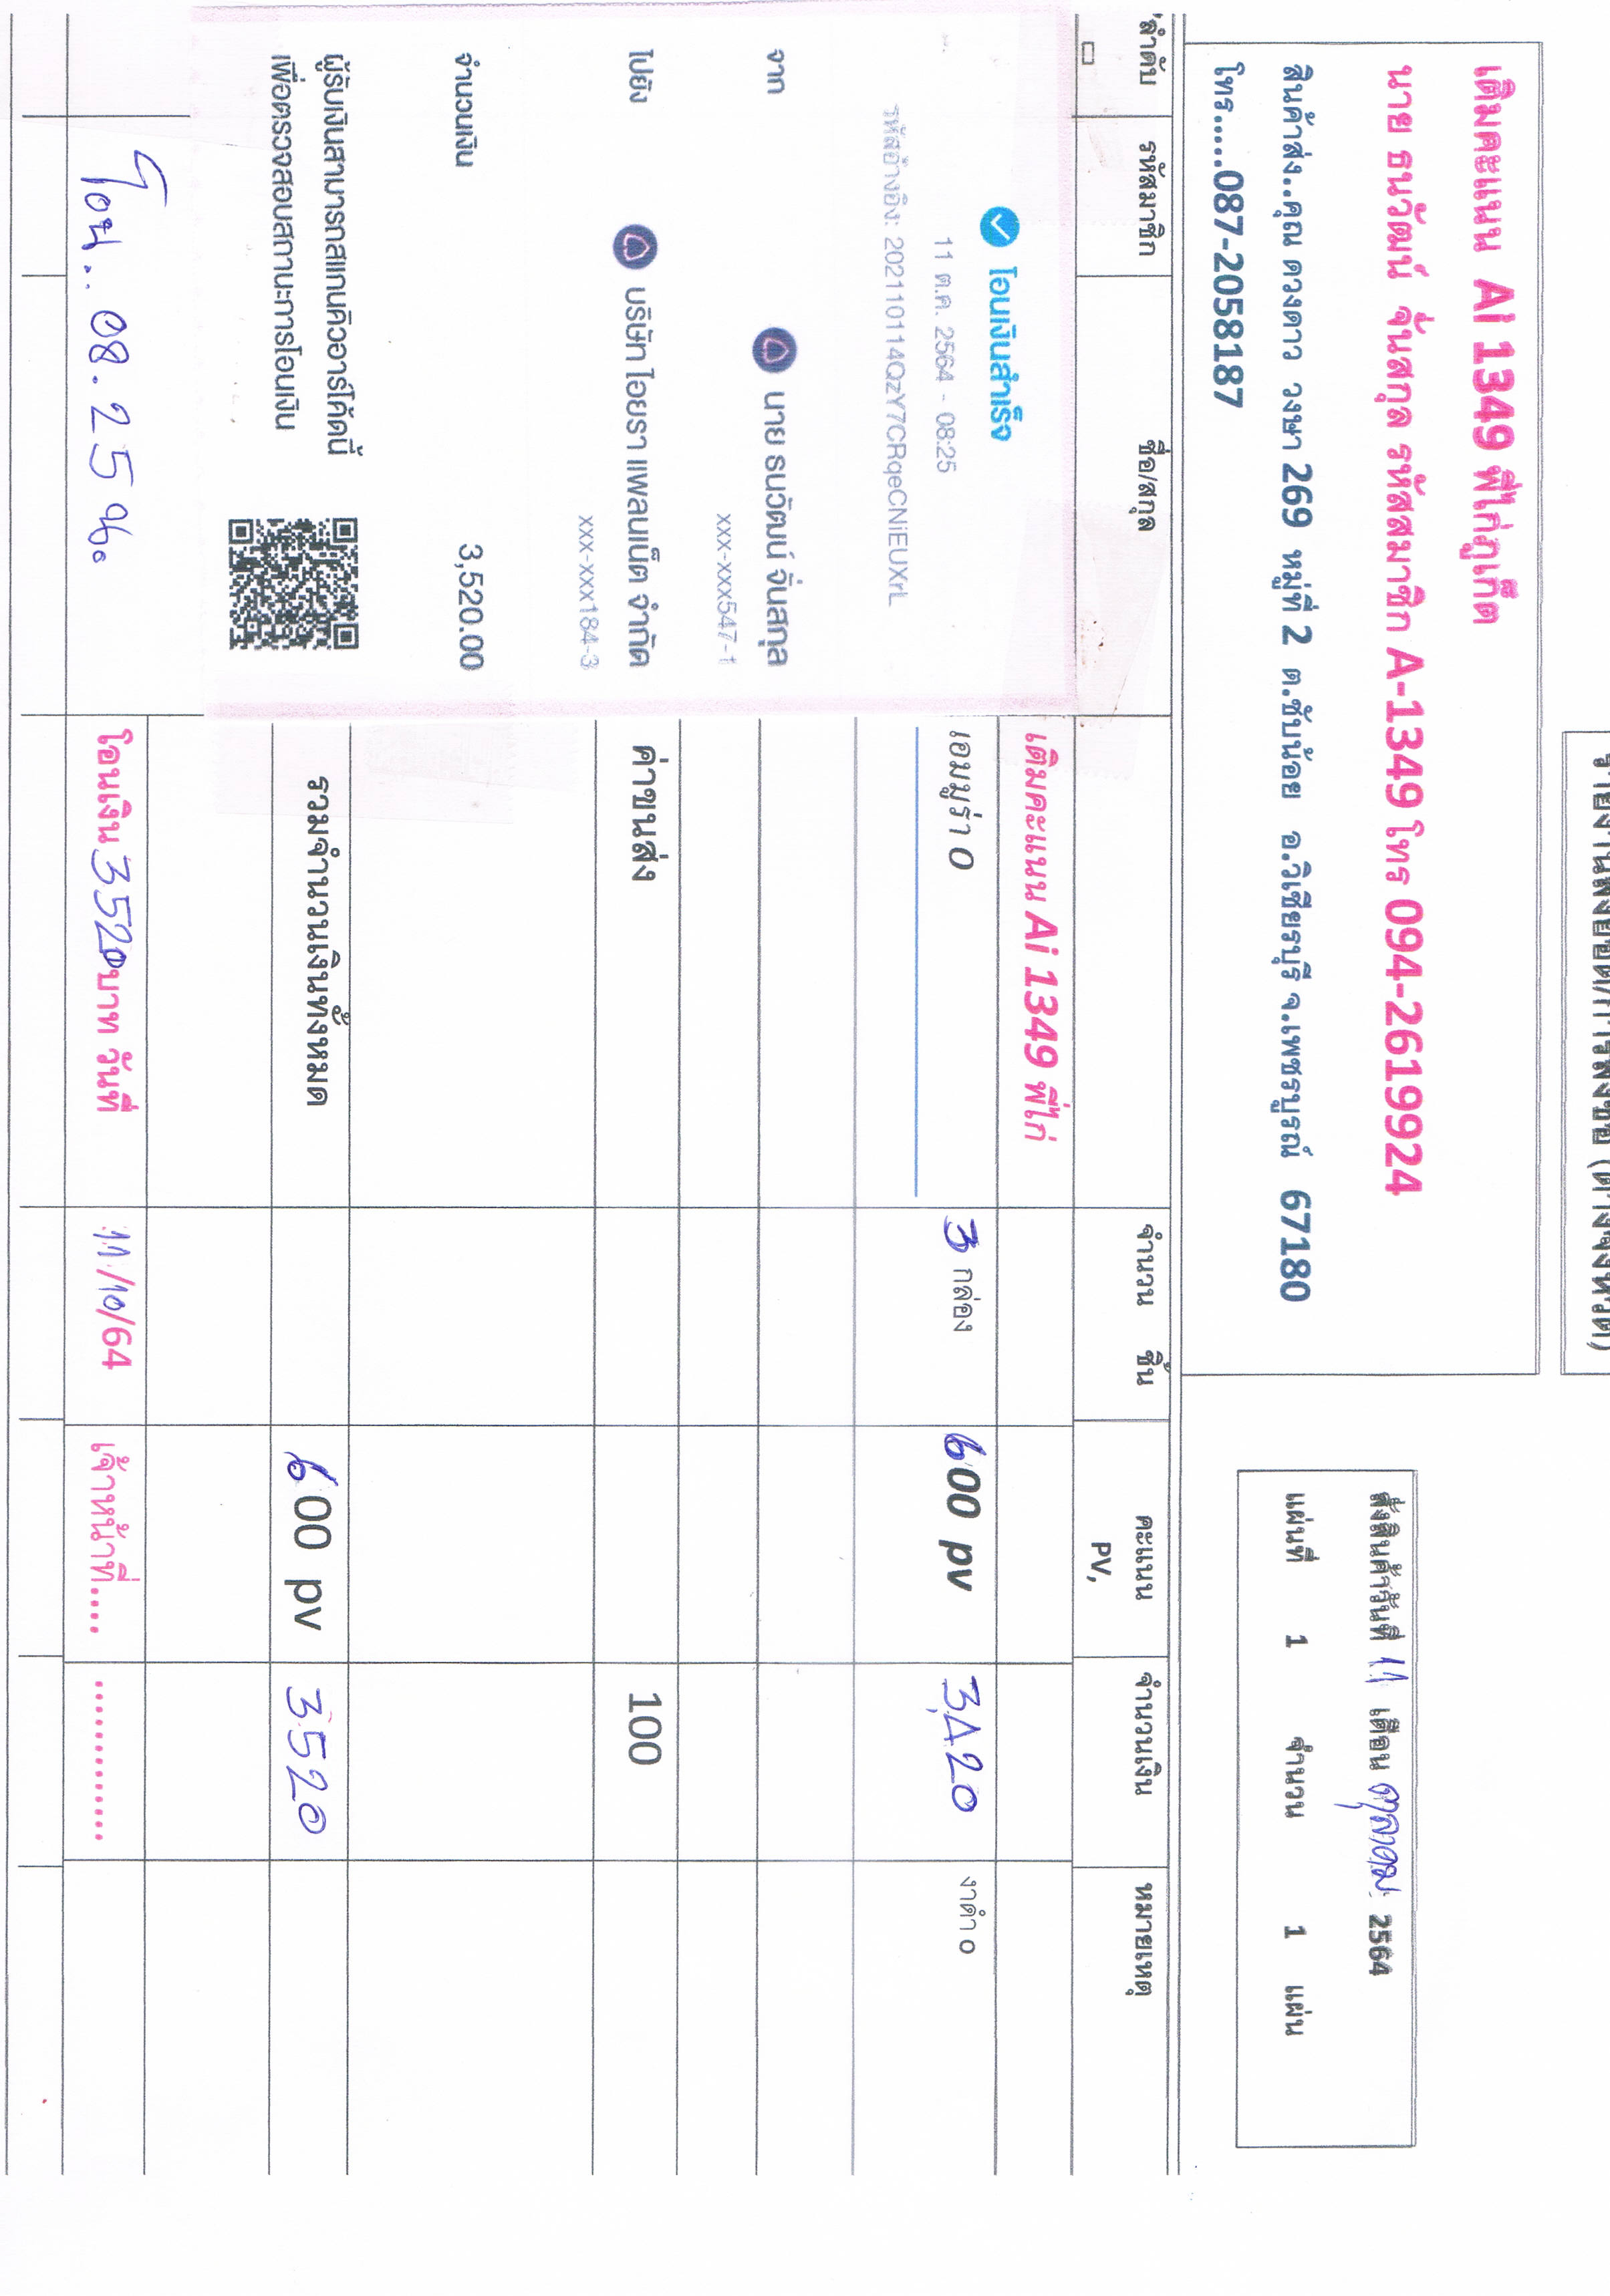 รายงานส่งยอด/การส่งซื้อ (ต่างจังหวัด)
เติมคะแนน AI 1349 พี่ไก่ภูเก็ต
นาย ธนวัฒน์ จั่นสกุล รหัสสมาชิก A-1349 โทร 094-2619924
สินค้าส่ง..คุณ ดวงดาว วงษา 269 หมู่ที่ 2 ต.ซับน้อย อ.วิเชียรบุรี จ.เพชรบูรณ์ 67180
โทร.....087-2058187
สั่งสินค้าวันที่ 11 เดือน ตุลาคม 2564
แผ่นที่ 1 จำนวน 1 แผ่น
ลำดับ รหัสมาชิก ชื่อ/สกุล จำนวน ชิ้น คะแนน PV, จำนวนเงิน หมายเหตุ
เติมคะแนน Ai 1349 พี่ไก่
เอมมูร่า O 3 กล่อง 600 pv 3,420 งาดำ o
ค่าขนส่ง 100
รวมจำนวนเงินทั้งหมด 600 pv 3520
โอนเงินสำเร็จ
11 ต.ค. 2564 - 08:25
รหัสอ้างอิง: 202110114QzY7CRqeCNiEUXrL
จาก นาย ธนวัฒน์ จั่นสกุล
xxx-xxx547-1
ไปยัง บริษัท ไอยรา แพลนเน็ต จำกัด
xxx-xxx184-3
จำนวนเงิน 3,520.00
ผู้รับเงินสามารถสแกนคิวอาร์โค้ดนี้
เพื่อตรวจสอบสถานะการโอนเงิน
โอน.. 08.25 น. โอนเงิน 3520 บาท วันที่ 11/10/64 เจ้าหน้าที่.... ............